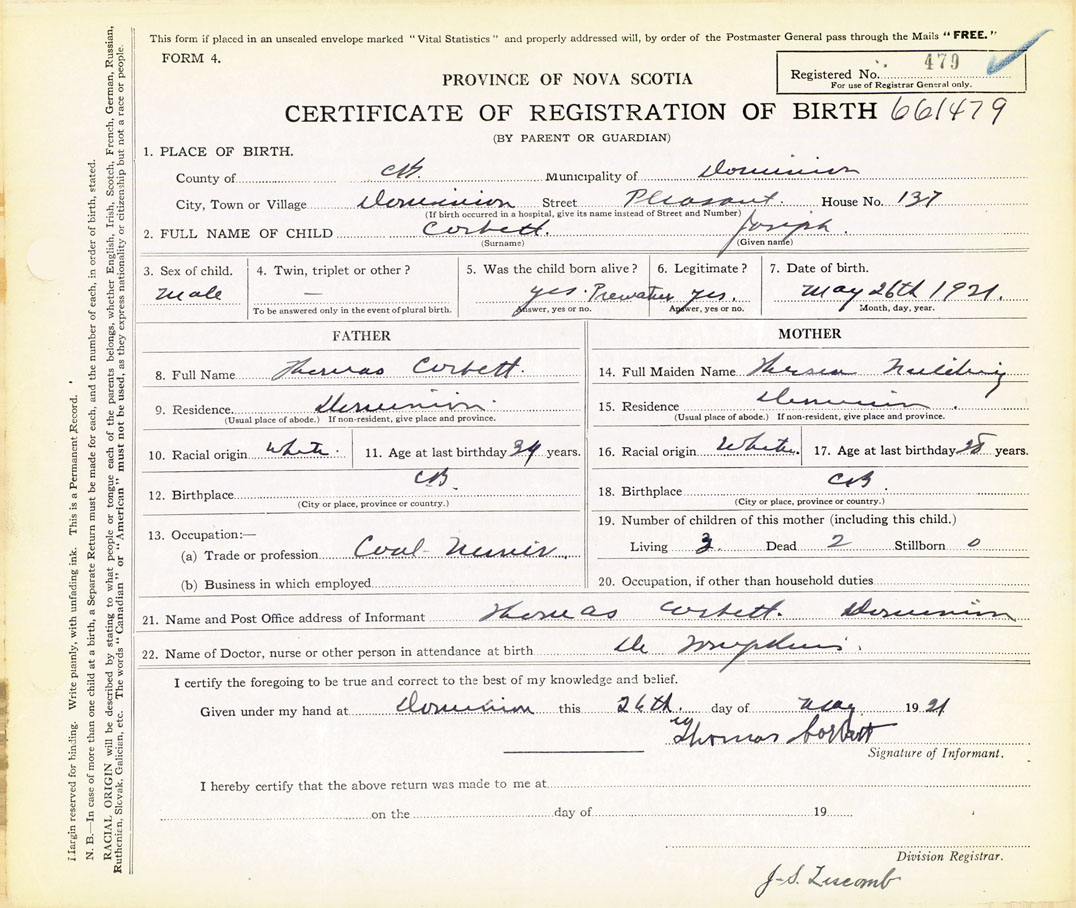 This form if placed in an unsealed envelope marked "Vital Statistics" and properly addressed will, by order of the Postmaster General pass through the Mails "FREE."
FORM 4.
Registered No. 479
For use of Registrar General only.
PROVINCE OF NOVA SCOTIA
CERTIFICATE OF REGISTRATION OF BIRTH 661479
(BY PARENT OR GUARDIAN)
1. PLACE OF BIRTH.
County of CB. Municipality of Dominion
City, Town or Village Dominion Street Pleasant. House No. 137
(If birth occurred in a hospital, give its name instead of Street and Number)
2. FULL NAME OF CHILD Corbett. Joseph.
(Surname) (Given name)
3. Sex of child. 4. Twin, triplet or other? 5. Was the child born alive? 6. Legitimate? 7. Date of birth.
Male — yes. yes. May 26th 1921.
To be answered only in the event of plural birth. Answer, yes or no. Answer, yes or no. Month, day, year.
FATHER
8. Full Name Thomas Corbett.
9. Residence. Dominion.
(Usual place of abode.) If non-resident, give place and province.
10. Racial origin White. 11. Age at last birthday 34 years.
12. Birthplace CB.
(City or place, province or country.)
13. Occupation:—
(a) Trade or profession Coal Miner.
(b) Business in which employed
MOTHER
14. Full Maiden Name
15. Residence Dominion.
(Usual place of abode.) If non-resident, give place and province.
16. Racial origin White. 17. Age at last birthday years.
18. Birthplace CB.
(City or place, province or country.)
19. Number of children of this mother (including this child.)
Living 3. Dead 2 Stillborn 0
20. Occupation, if other than household duties
21. Name and Post Office address of Informant Thomas Corbett. Dominion
22. Name of Doctor, nurse or other person in attendance at birth
I certify the foregoing to be true and correct to the best of my knowledge and belief.
Given under my hand at Dominion this 26th. day of May 1921
Thomas Corbett
Signature of Informant.
I hereby certify that the above return was made to me at
on the day of 19
Division Registrar.
J. S. Liscomb
Margin reserved for binding. Write plainly, with unfading ink. This is a Permanent Record.
N. B.—In case of more than one child at a birth, a Separate Return must be made for each, and the number of each, in order of birth, stated.
RACIAL ORIGIN will be described by stating to what people or tongue each of the parents belongs, whether English, Irish, Scotch, French, German, Russian,
Ruthenian, Slovak, Galician, etc. The words "Canadian" or "American" must not be used, as they express nationality or citizenship but not a race or people.